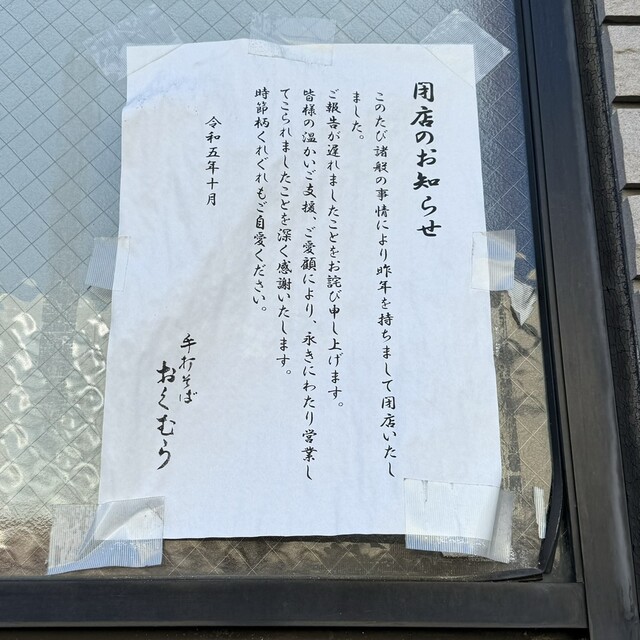 閉店のお知らせ
このたび諸般の事情により昨年を持ちまして閉店いたし
ました。
ご報告が遅れましたことをお詫び申し上げます。
皆様の温かいご支援、ご愛顧により、永きにわたり営業し
てこられましたことを深く感謝いたします。
時節柄くれぐれもご自愛ください。
令和五年十月
手打そば
おくむら